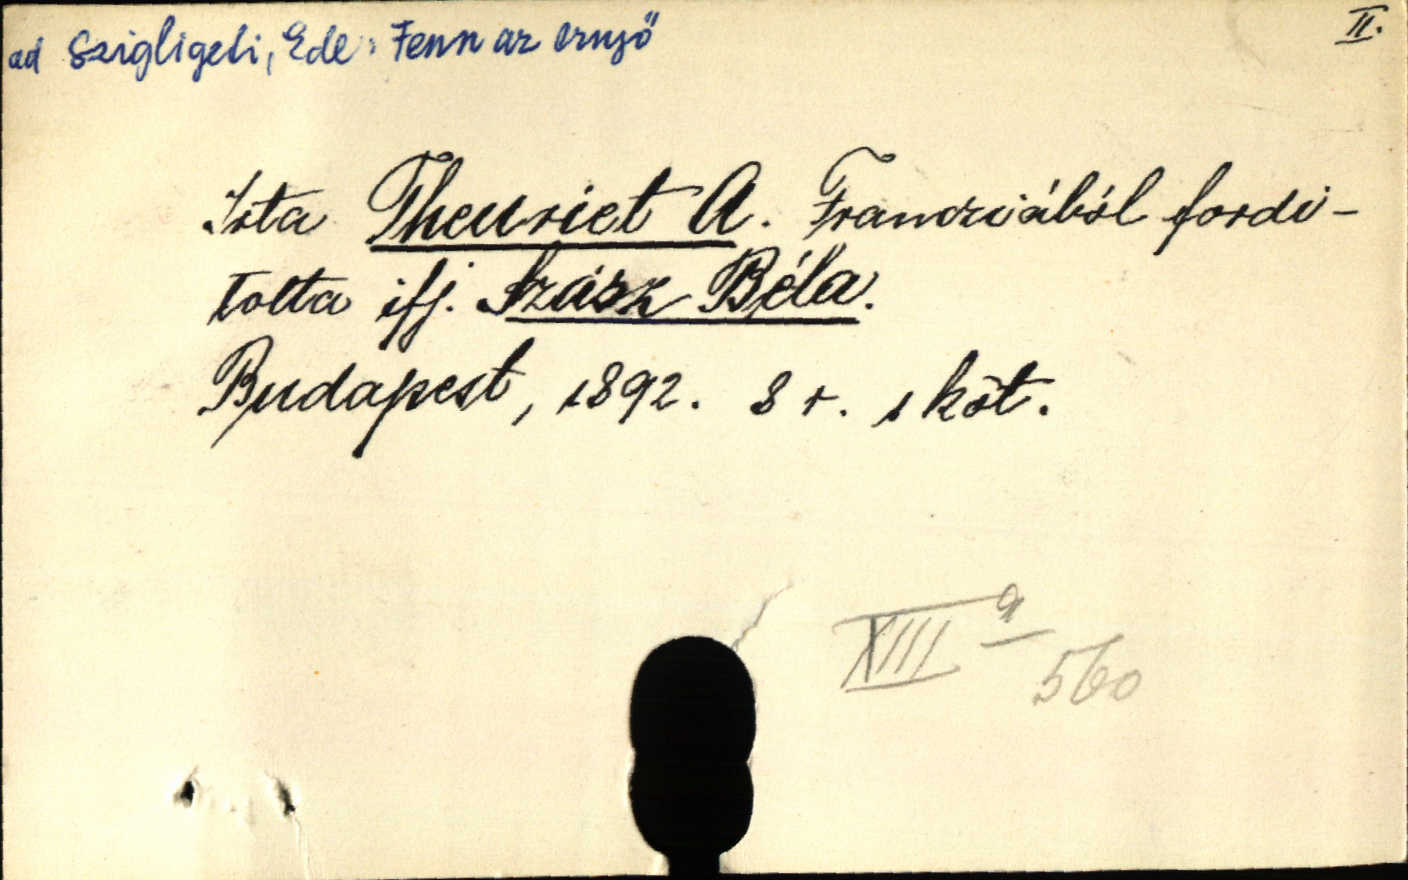 ad Szigligeti, Ede: Fenn az ernyő
II.
Irta Theuriet A. Francziából fordi-
totta ifj. Szász Béla.
Budapest, 1892. 8 r. 1 köt.
XIII a
560